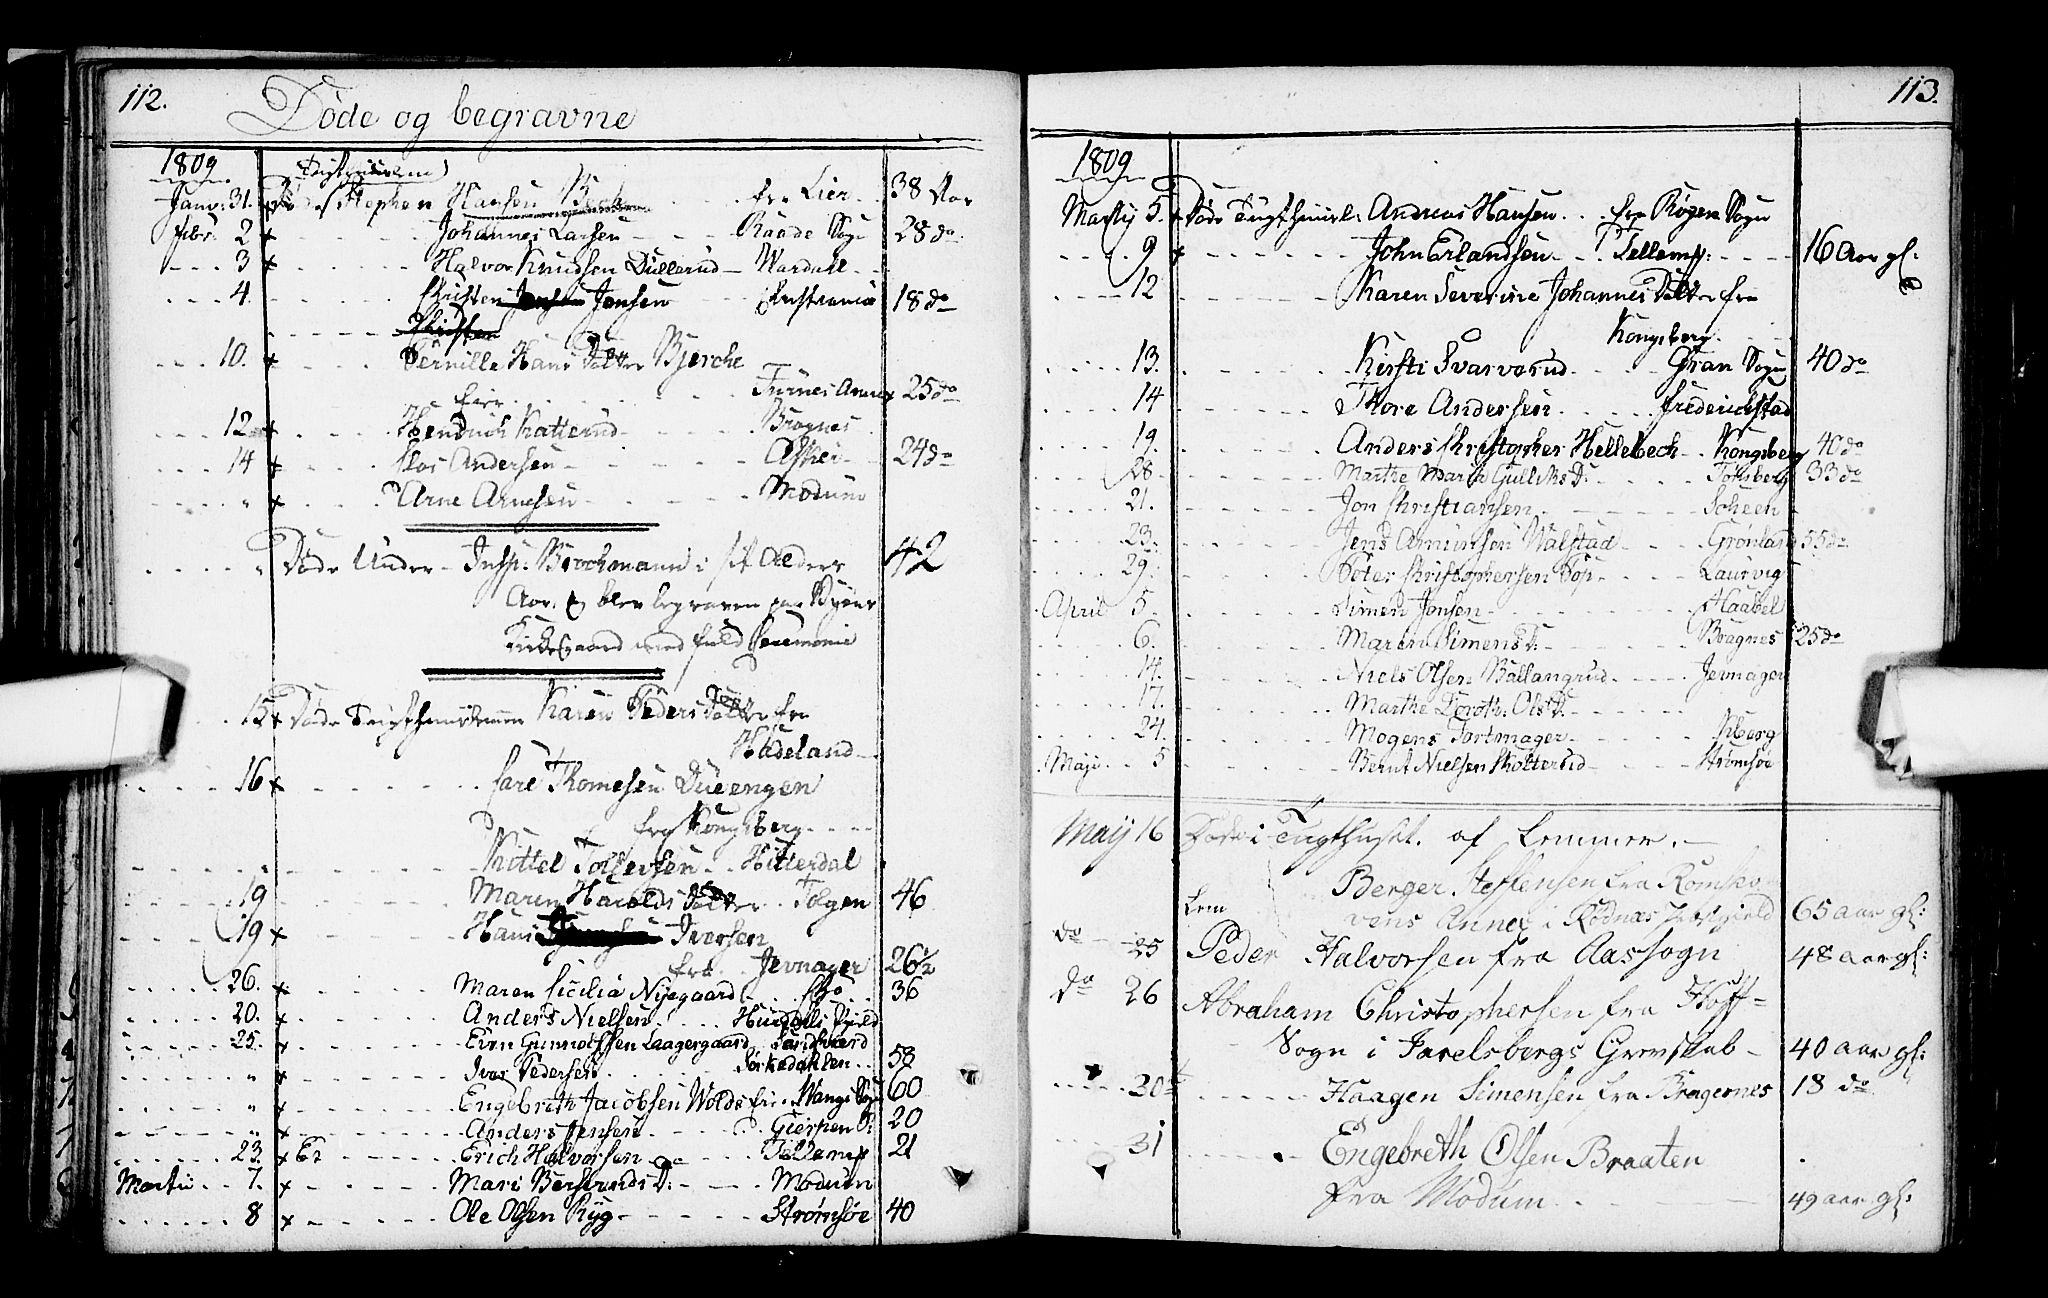 112.
Døde og begravne
1809
Janv: 31. Stephen Hansen Beck fra Lier 38 Aar
Febr: 2 Johannes Larsen Raade Sogn 28 do
3 Halvor Knudsen Dullerud Wardahl
4. Christen Jensen Christiania 18 do
10. Pernille Hans Datter Bjerche
Furnes Annex 25 do
12 Hendrich Katterud Bragnes
14 Andersen Asker 24 do
" Arne Arnesen Modum
" Døde Under-Insp: Brochmann i sit Alders 42
Aar. og blev begraven paa Byens
Kirkegaard med fuld Ceremonie
15 Døde Karen Peders Datter fra
Hadeland
16 Lars Thomesen Dueengen
fra Kongsberg
" Kittel Tollevsen Hitterdal
19 Maren Harolds Datter Tolgen 46
19 Hans Iversen
fra Jevnager 26 1/2
26. Maren Cicilia Nyegaard 36
20. Anders Nielsen Hurdals
25. Even Gunnolfsen Laagergaard Sandsværd
" Iver Pedersen Sørkedahlen 58
" Engebreth Jacobsen Wolds fra Wangs Sogn 60
" Anders Jensen Gierpen 20
23. Erich Halvorsen Tellem: 21
Martii 7. Mari Bersvends D: Modum
8 Ole Olsen Ryg Strømsøe 40
113.
1809
Martij 5. Døde Tugthuusl: Andreas Hansen fra Røgen Sogn
9 John Erlandsen Tellem: 16 Aar gl:
12 Karen Severine Johannes Datter fra
Kongsberg
13. Kirsti Svarverud Gran Sogn 40 do
14 Thore Andersen Frederichstad
19. Anders Christopher Hellebech Kongsberg 40 do
28 Marthe Maria Gulliks D: Tønsberg 33 do
21. Jon Christiansen Scheen
23. Jens Amunsen Walstad Grønland 55 do
29. Peter Christophersen Top Laurvig
April 5. Simen Jonsen Haabel
6. Maren Simens D: Bragnes 25 do
14. Niels Olsen Ballangrud Jevnager
17. Marthe Doroth: Ols D:
24. Mogens Portmager Kberg
Maji 5 Bernt Nielsen Kolterud Strømsøe
Maij 16 Døde i Tugthuset. af Lemmer.
Berger Steffensen fra Romsko
vens Annex i Rødnæs Præstegield 65 aar gl:
do 25 Lem Peder Halvorsen fra Aassogn 48 aar gl:
do 26 Abraham Christophersen fra Hoff=
Sogn i Jarelsbergs Grevskab 40 aar gl:
30 Haagen Simensen fra Bragernes 18 do
31 Engebreth Olsen Braaten
fra Modum 49 aar gl: